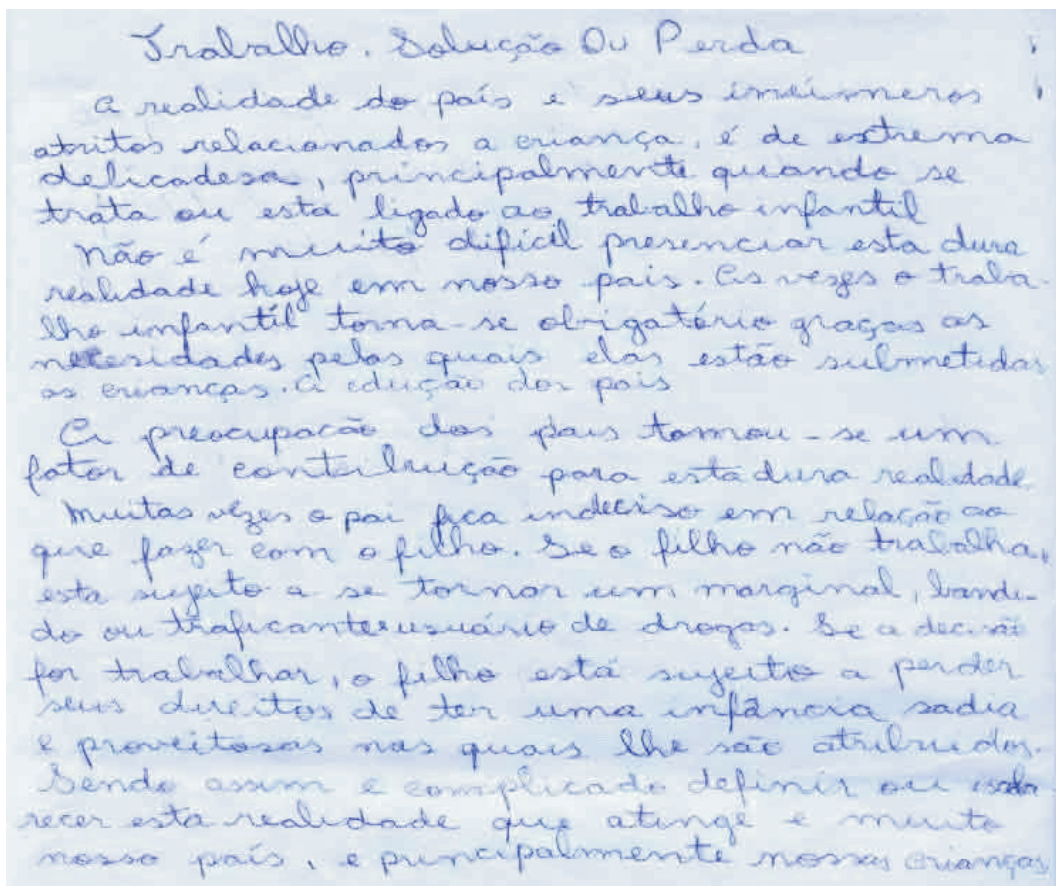 Trabalho. Solução Ou Perda
A realidade do país e seus inúmeros
atritos relacionados a criança, é de extrema
delicadesa, principalmente quando se
trata ou está ligado ao trabalho infantil
Não é muito difícil presenciar esta dura
realidade hoje em nosso país. As vezes o traba-
lho infantil torna-se obrigatório graças as
necesidades pelas quais elas estão submetidas
as crianças. A edução dos pais
A preocupacão dos pais tornou-se um
fator de contribuição para esta dura realidade.
Muitas vêzes o pai fica indeciso em relação ao
que fazer com o filho. Se o filho não trabalha,
esta sujeito a se tornar um marginal, bandi-
do ou traficante usuário de drogas. Se a decisão
for trabalhar, o filho está sujeito a perder
seus direitos de ter uma infância sadia
e proveitosas nas quais lhe são atribuidos.
Sendo assim e complicado definir ou
recer esta realidade que atinge e muito
nosso país, e principalmente nossas crianças